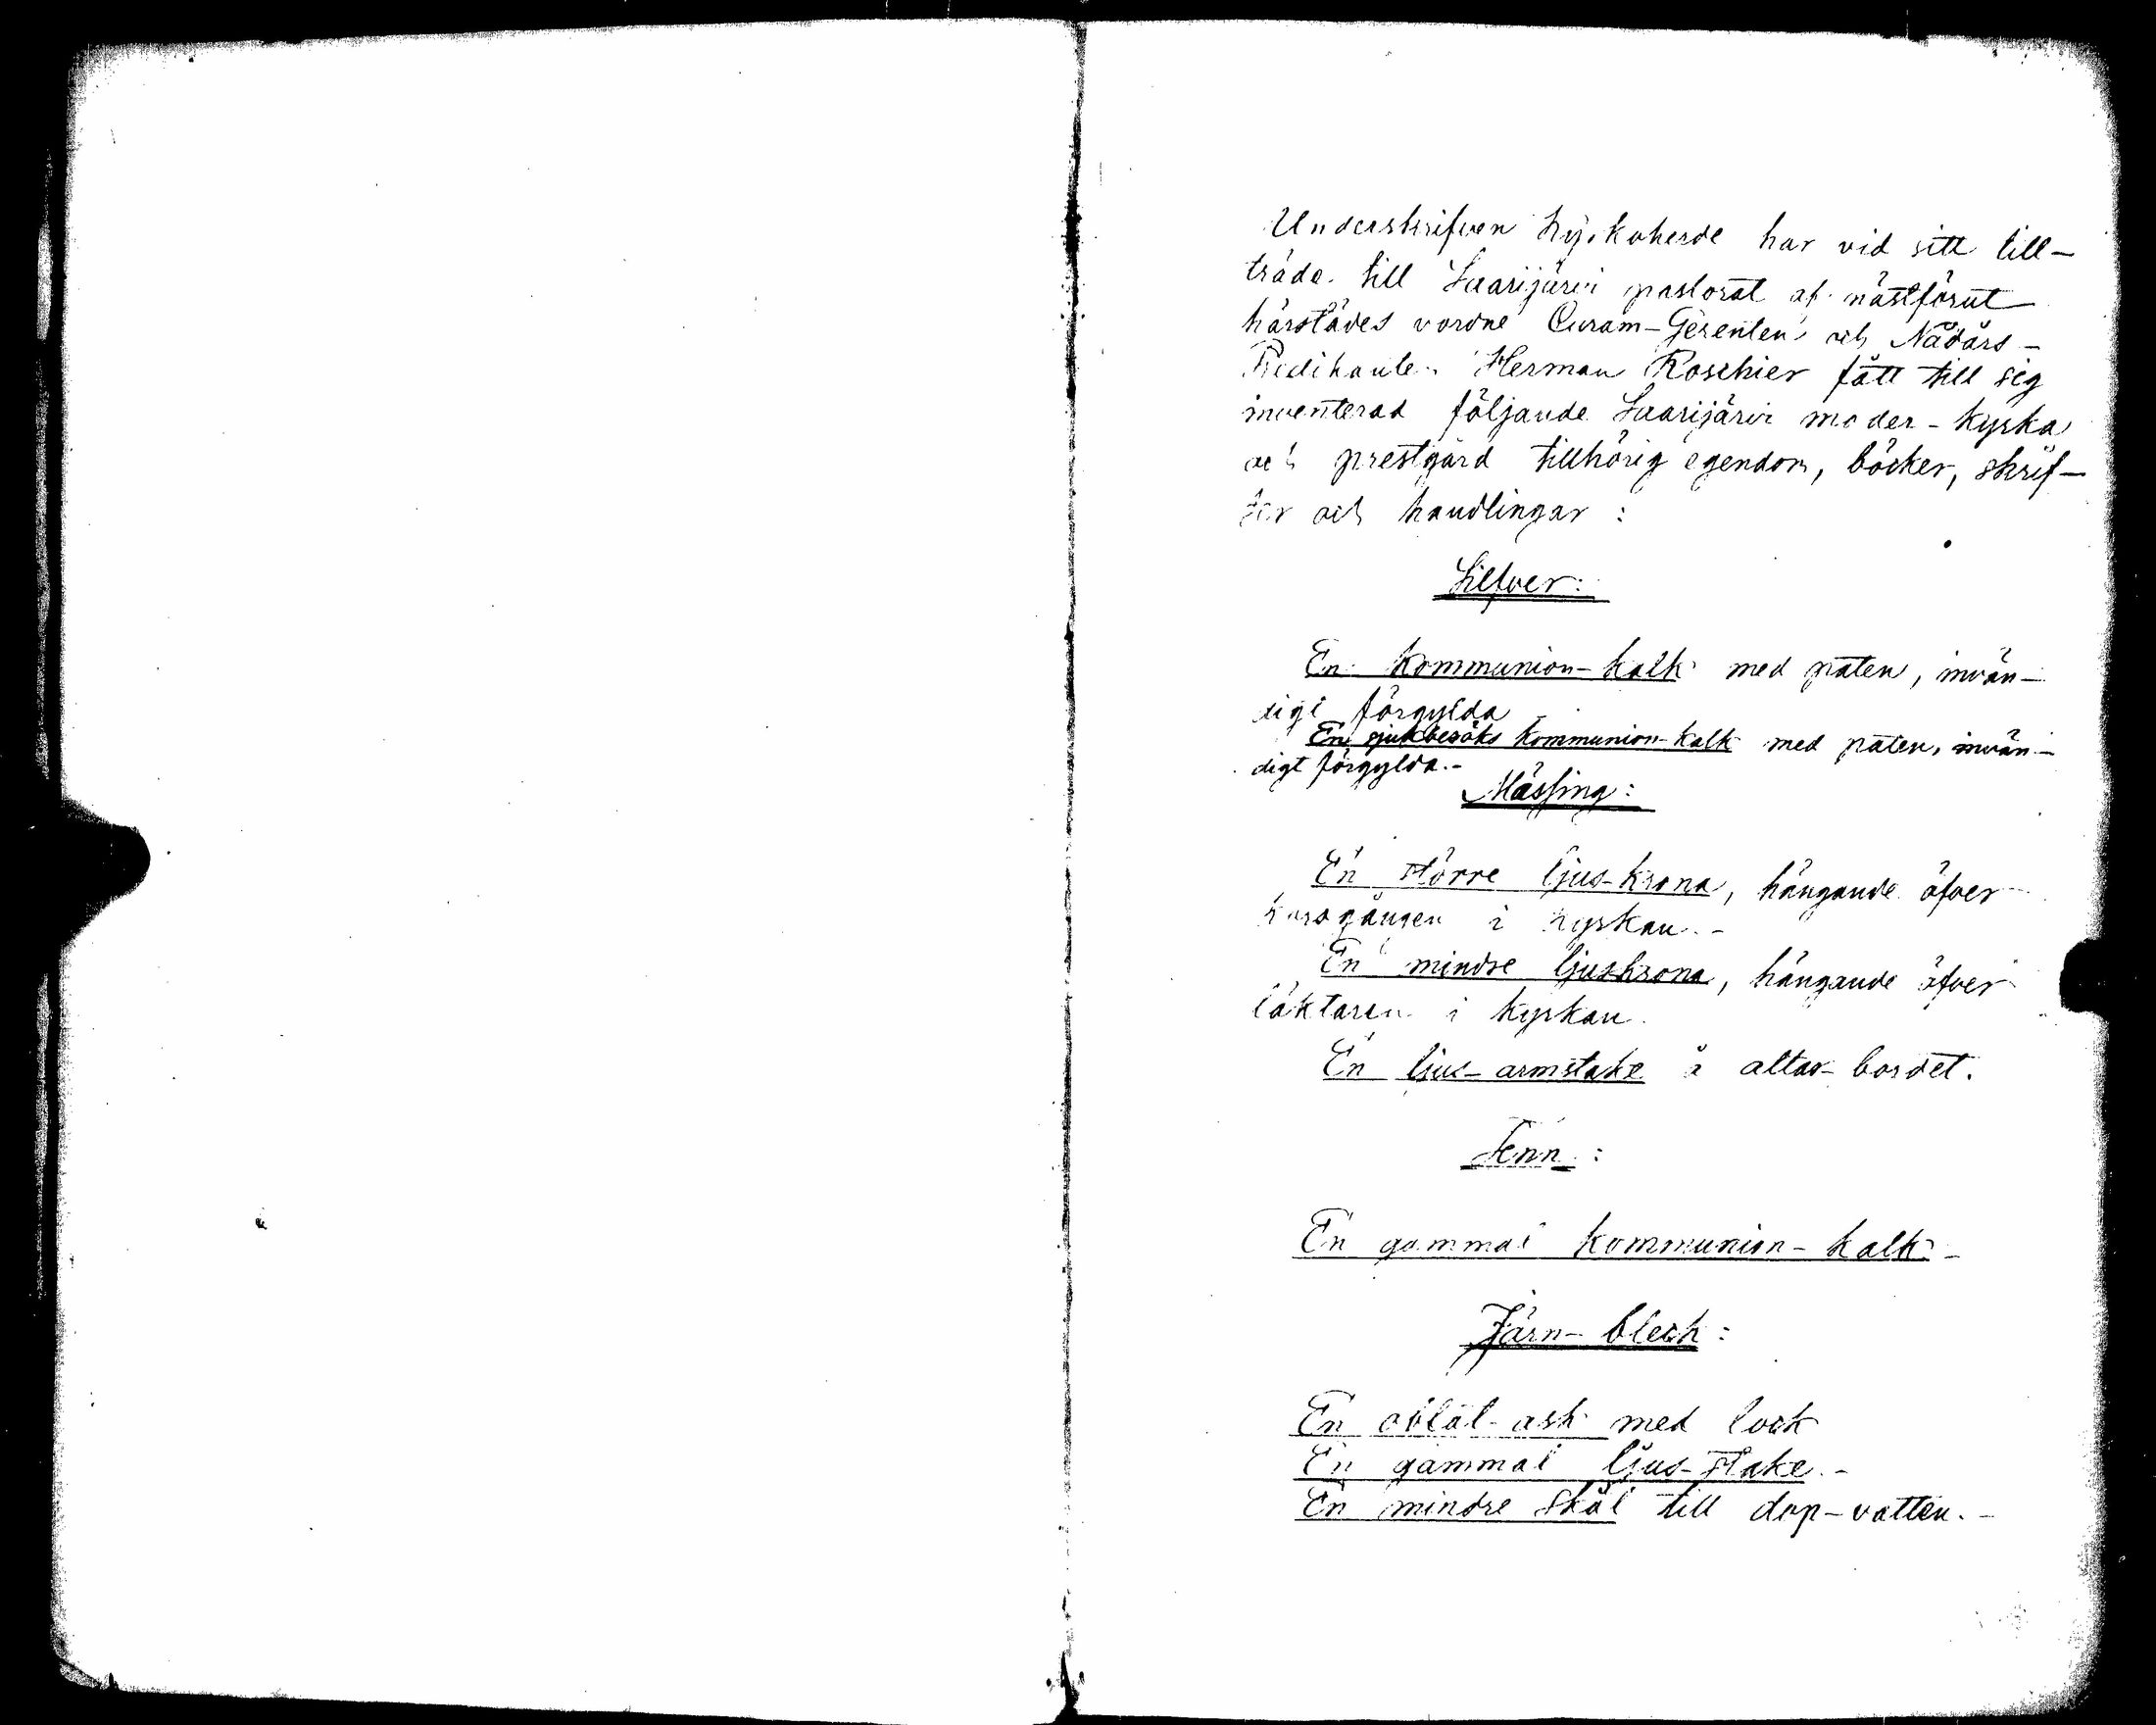 Underskrifven kyrkoherde har vid sitt till-
träde till Saarijärvi pastorat af nästförut
härstädes vordne Curam-Gerenten och Nådårs-
Predikanten Herman Roschier fått till sig
inventerad följande Saarijärvi moder-kyrka
och prestgård tillhörig egendom, böcker, skrif-
ter och handlingar :
Silfver:
En kommunion-kalk med paten, invän-
digt förgylda
En sjukbesöks kommunion-kalk med paten, invän-
digt förgylda.-
Mässing:
En större ljus-krona, hängande öfver
korsgången i kyrkan.-
En mindre ljuskrona, hängande öfver
läktaren i kyrkan.
En ljus-armstake å altar-bordet.
Tenn :
En gammal kommunion-kalk-
Järn-bleck :
En oblat-ask med lock
En gammal ljus-stake.-
En mindre skål till dop-vatten.-